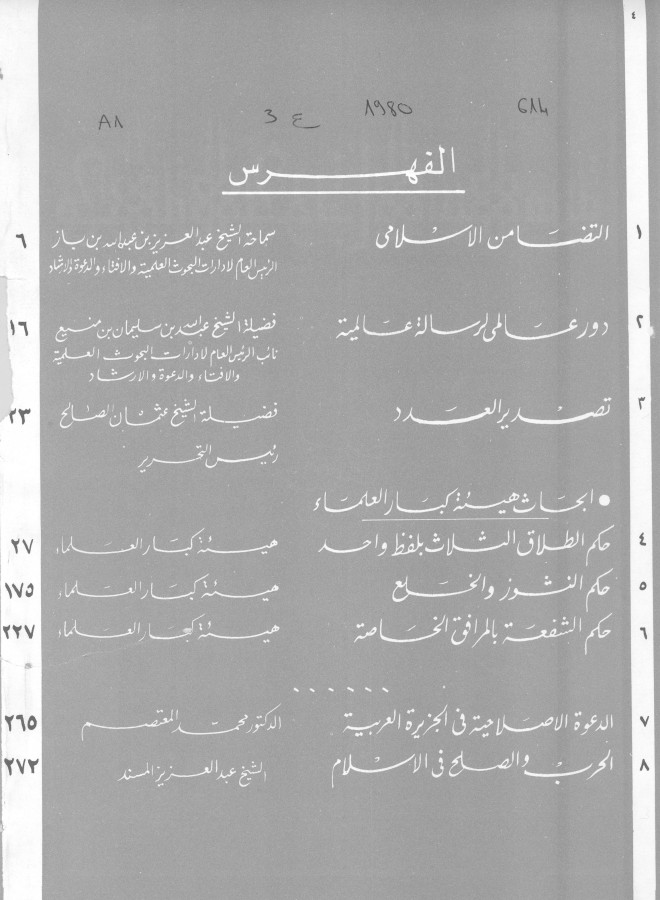 ٤
614 1980 ع 3 A1
الفهرس
١ التضامن الاسلامى سماحة الشيخ عبد العزيز بن عبدالله بن باز ٦
الرئيس العام لادارات البحوث العلمية والافتاء والدعوة والارشاد
٢ دور عالمى لرسالة عالمية فضيلة الشيخ عبدالله بن سليمان بن منيع ١٦
نائب الرئيس العام لادارات البحوث العلمية
والافتاء والدعوة والارشاد
٣ تصدير العدد فضيلة الشيخ عثمان الصالح ٢٣
رئيس التحرير
● ابحاث هيئة كبار العلماء
٤ حكم الطلاق الثلاث بلفظ واحد هيئة كبار العلماء ٢٧
٥ حكم النشوز والخلع هيئة كبار العلماء ١٧٥
٦ حكم الشفعة بالمرافق الخاصة هيئة كبار العلماء ٢٢٧
. . . . . .
٧ الدعوة الاصلاحية فى الجزيرة العربية الدكتور محمد المعتصم ٢٦٥
٨ الحرب والصلح فى الاسلام الشيخ عبد العزيز المسند ٢٧٢